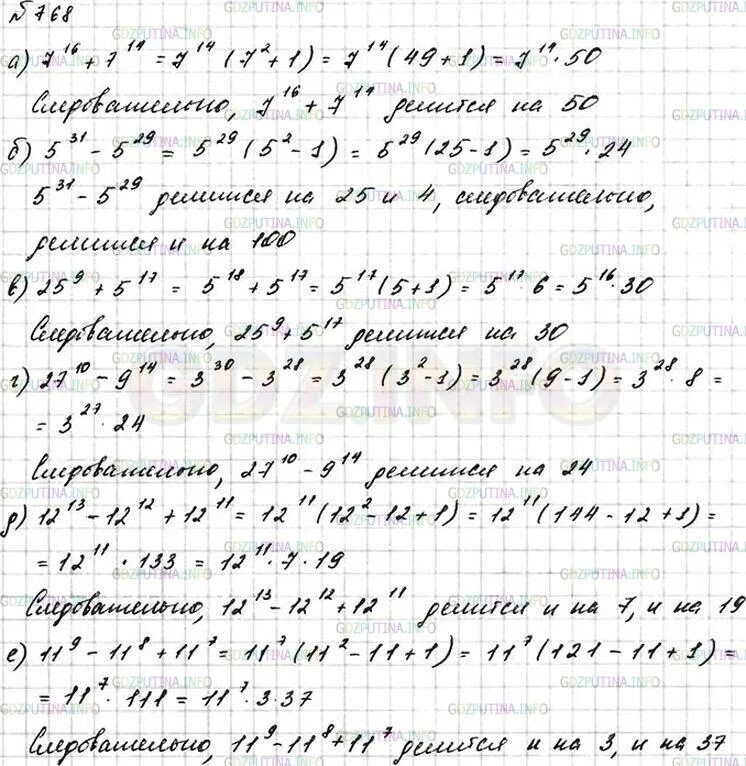 №768
а) 7^16 + 7^14 = 7^14 (7^2 + 1) = 7^14 (49 + 1) = 7^14 · 50
Следовательно, 7^16 + 7^14 делится на 50
б) 5^31 − 5^29 = 5^29 (5^2 − 1) = 5^29 (25 − 1) = 5^29 · 24
5^31 − 5^29 делится на 25 и 4, следовательно,
делится и на 100
в) 25^9 + 5^17 = 5^18 + 5^17 = 5^17 (5 + 1) = 5^17 · 6 = 5^16 · 30
Следовательно, 25^9 + 5^17 делится на 30
г) 27^10 − 9^14 = 3^30 − 3^28 = 3^28 (3^2 − 1) = 3^28 (9 − 1) = 3^28 · 8 =
= 3^27 · 24
Следовательно, 27^10 − 9^14 делится на 24
д) 12^13 − 12^12 + 12^11 = 12^11 (12^2 − 12 + 1) = 12^11 (144 − 12 + 1) =
= 12^11 · 133 = 12^11 · 7 · 19
Следовательно, 12^13 − 12^12 + 12^11 делится и на 7, и на 19
е) 11^9 − 11^8 + 11^7 = 11^7 (11^2 − 11 + 1) = 11^7 (121 − 11 + 1) =
= 11^7 · 111 = 11^7 · 3 · 37
Следовательно, 11^9 − 11^8 + 11^7 делится и на 3, и на 37
GDZ.INFO
GDZPUTINA.INFO